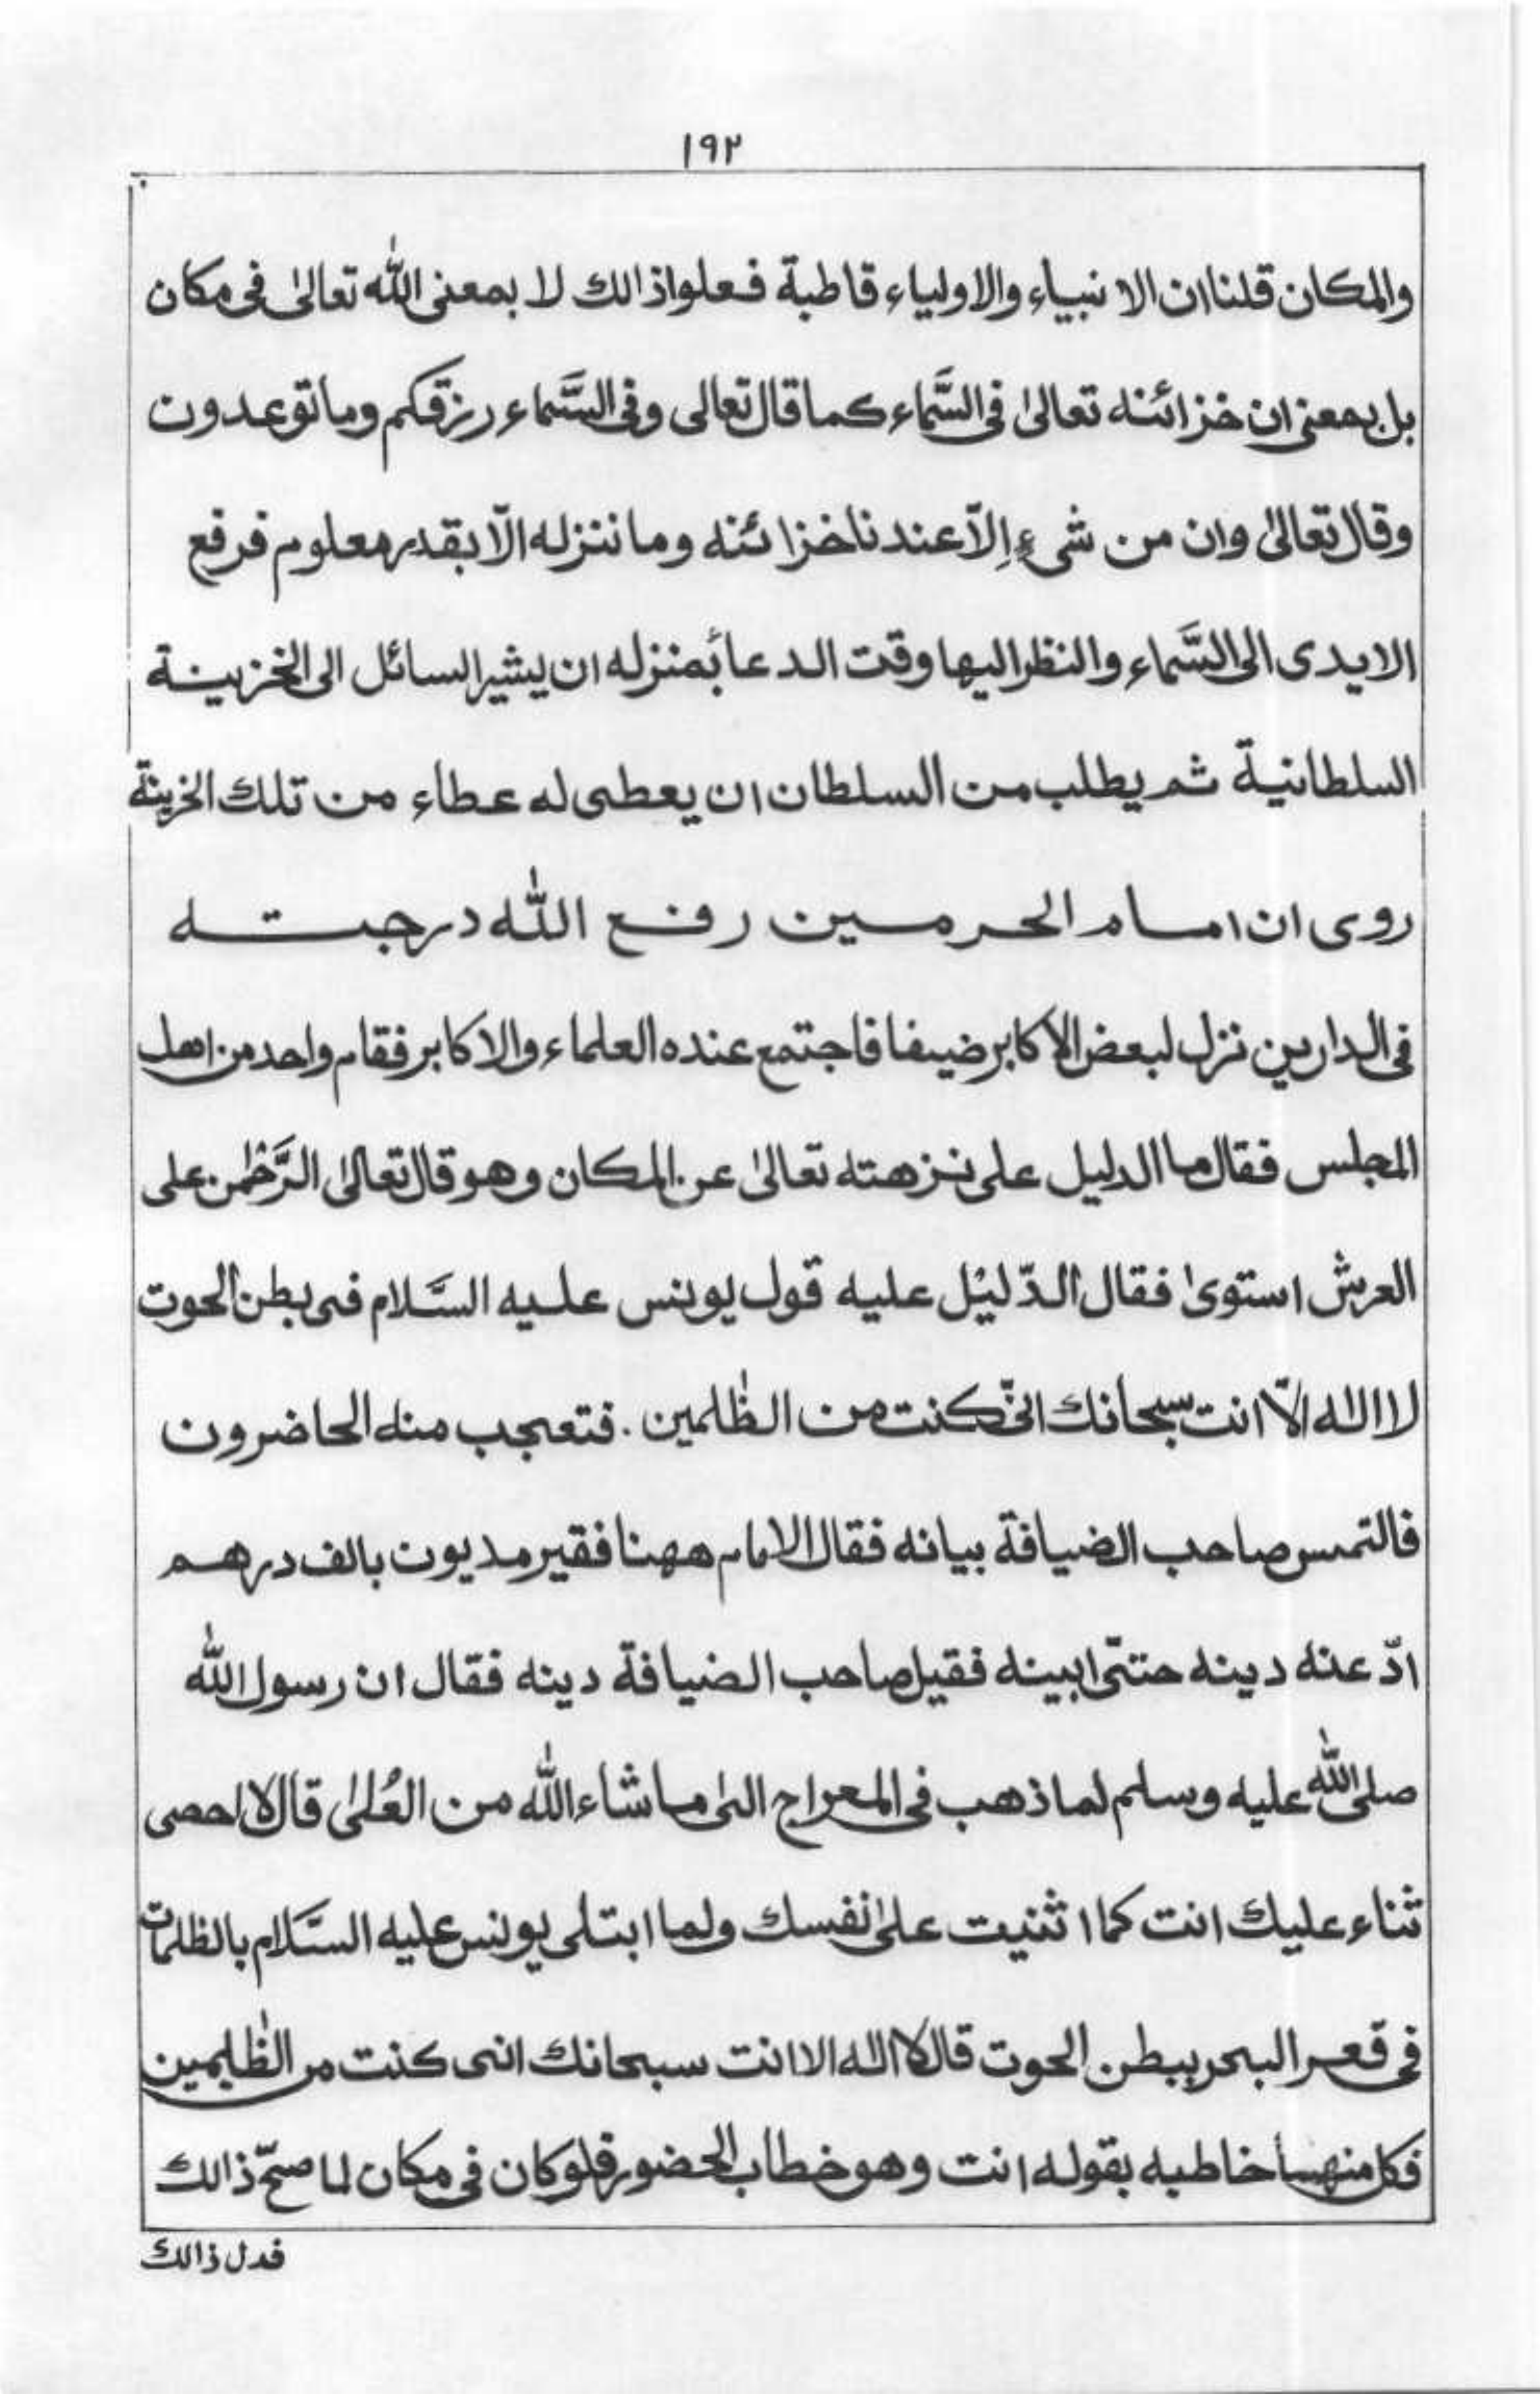 ١٩٢
والمكان قلنا ان الانبياء والاولياء قاطبة فعلوا ذالك لا بمعنى الله تعالىٰ فى مكان
بل بمعنى ان خزائنه تعالىٰ فى السَّماء كما قال تعالى وفى السَّماء رزقكم وما توعدون
وقال تعالىٰ وان من شىءٍ إلّا عندنا خزائنه وما ننزله الّا بقدر معلوم فرفع
الايدى الى السَّماء والنظر اليها وقت الدعا بمنزله ان يشير السائل الى الخزينة
السلطانية ثم يطلب من السلطان ان يعطى له عطاء من تلك الخزينة
روى ان امام الحرمين رفع الله درجته
فى الدارين نزل لبعض الاكابر ضيفا فاجتمع عنده العلماء والاكابر فقام واحد من اهل
المجلس فقال ما الدليل على نزهته تعالىٰ عن المكان وهو قال تعالىٰ الرَّحْمٰن على
العرش استوىٰ فقال الدّليْل عليه قول يونس عليه السَّلام فى بطن الحوت
لا اله الّا انت سبحانك انّى كنت من الظّٰلمين . فتعجب منه الحاضرون
فالتمس صاحب الضيافة بيانه فقال الامام ههنا فقير مديون بالف درهم
ادّ عنه دينه حتّى ابينه فقيل صاحب الضيافة دينه فقال ان رسول الله
صلى الله عليه وسلم لما ذهب فى المعراج الىٰ ما شاء الله من العُلىٰ قال لا احصى
ثناء عليك انت كما اثنيت علىٰ نفسك ولما ابتلى يونس عليه السَّلام بالظلمات
فى قعر البحر ببطن الحوت قال لا اله الا انت سبحانك انى كنت من الظّٰلمين
فكل منهما خاطبه بقوله انت وهو خطاب الحضور فلو كان فى مكان لما صحّ ذالك
فدل ذالك